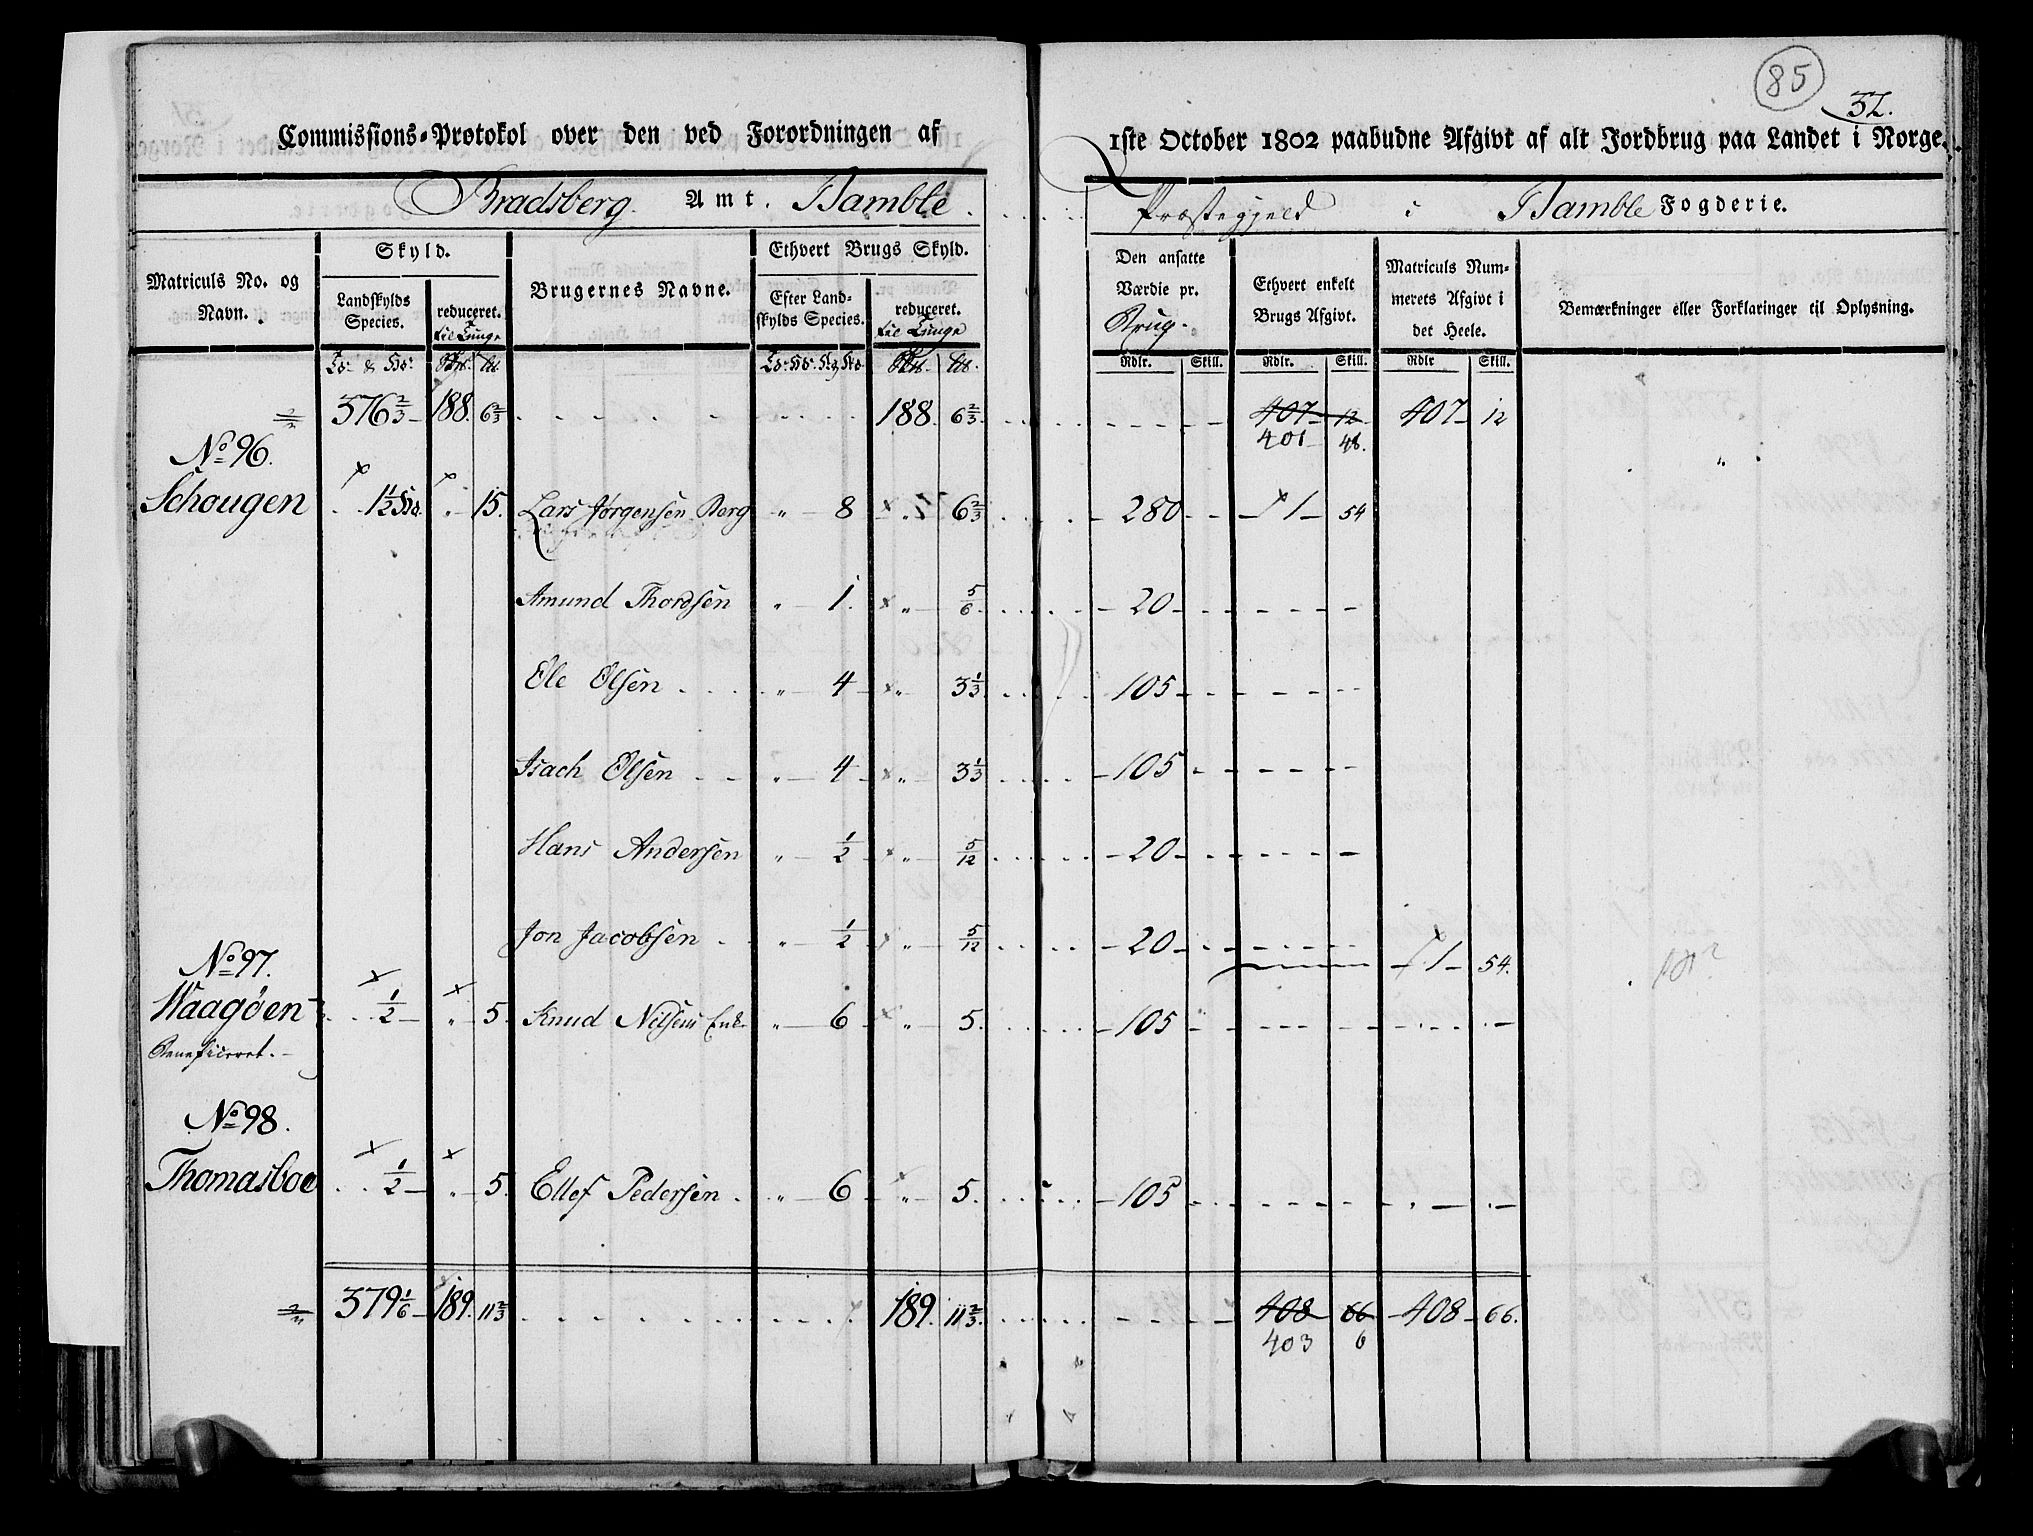 85
32.
Commissions-Protokol over den ved Forordningen af 1ste October 1802 paabudne Afgivt af alt Jordbrug paa Landet i Norge.
Bradsberg Amt. Bamble Præstegjeld i Bamble Fogderie.
Matriculs No. og Navn.
Skyld.
Landskylds Species.
reduceret. til Tunge
Brugernes Navne.
Ethvert Brugs Skyld.
Efter Landskylds Species.
reduceret. til Tunge
Den ansatte Værdie pr. Brug.
Ethvert enkelt Brugs Afgivt.
Matriculs Nummerets Afgivt i det Heele.
Bemærkninger eller Forklaringer til Oplysning.
Rdlr. Skill. Rdlr. Skill. Rdlr Skill.
376 2/3 188. 6 2/3 188. 6 2/3 407 12 407 12
401 48.
No 96.
Schougen 1 1/2 15. Lars Jørgensen Berg " 8 " 6 2/3 280 1 54
Amund Thordsen " 1. " 5/6 20
Ole Olsen " 4 " 3 1/3 105
Isach Olsen " 4 " 3 1/3 105
Hans Andersen " 1/2 " 5/12 20
Jon Jacobsen " 1/2 " 5/12 20 1 54.
No 97.
Waagøen 1/2 " 5. Knud Nilsens Enke " 6 " 5. 105
Beneficeret.
No 98.
Thomasboe 1/2 " 5. Ellef Pedersen " 6 " 5. 105
379 1/6 189. 11 2/3 189. 11 2/3 408 66 408 66.
403 6